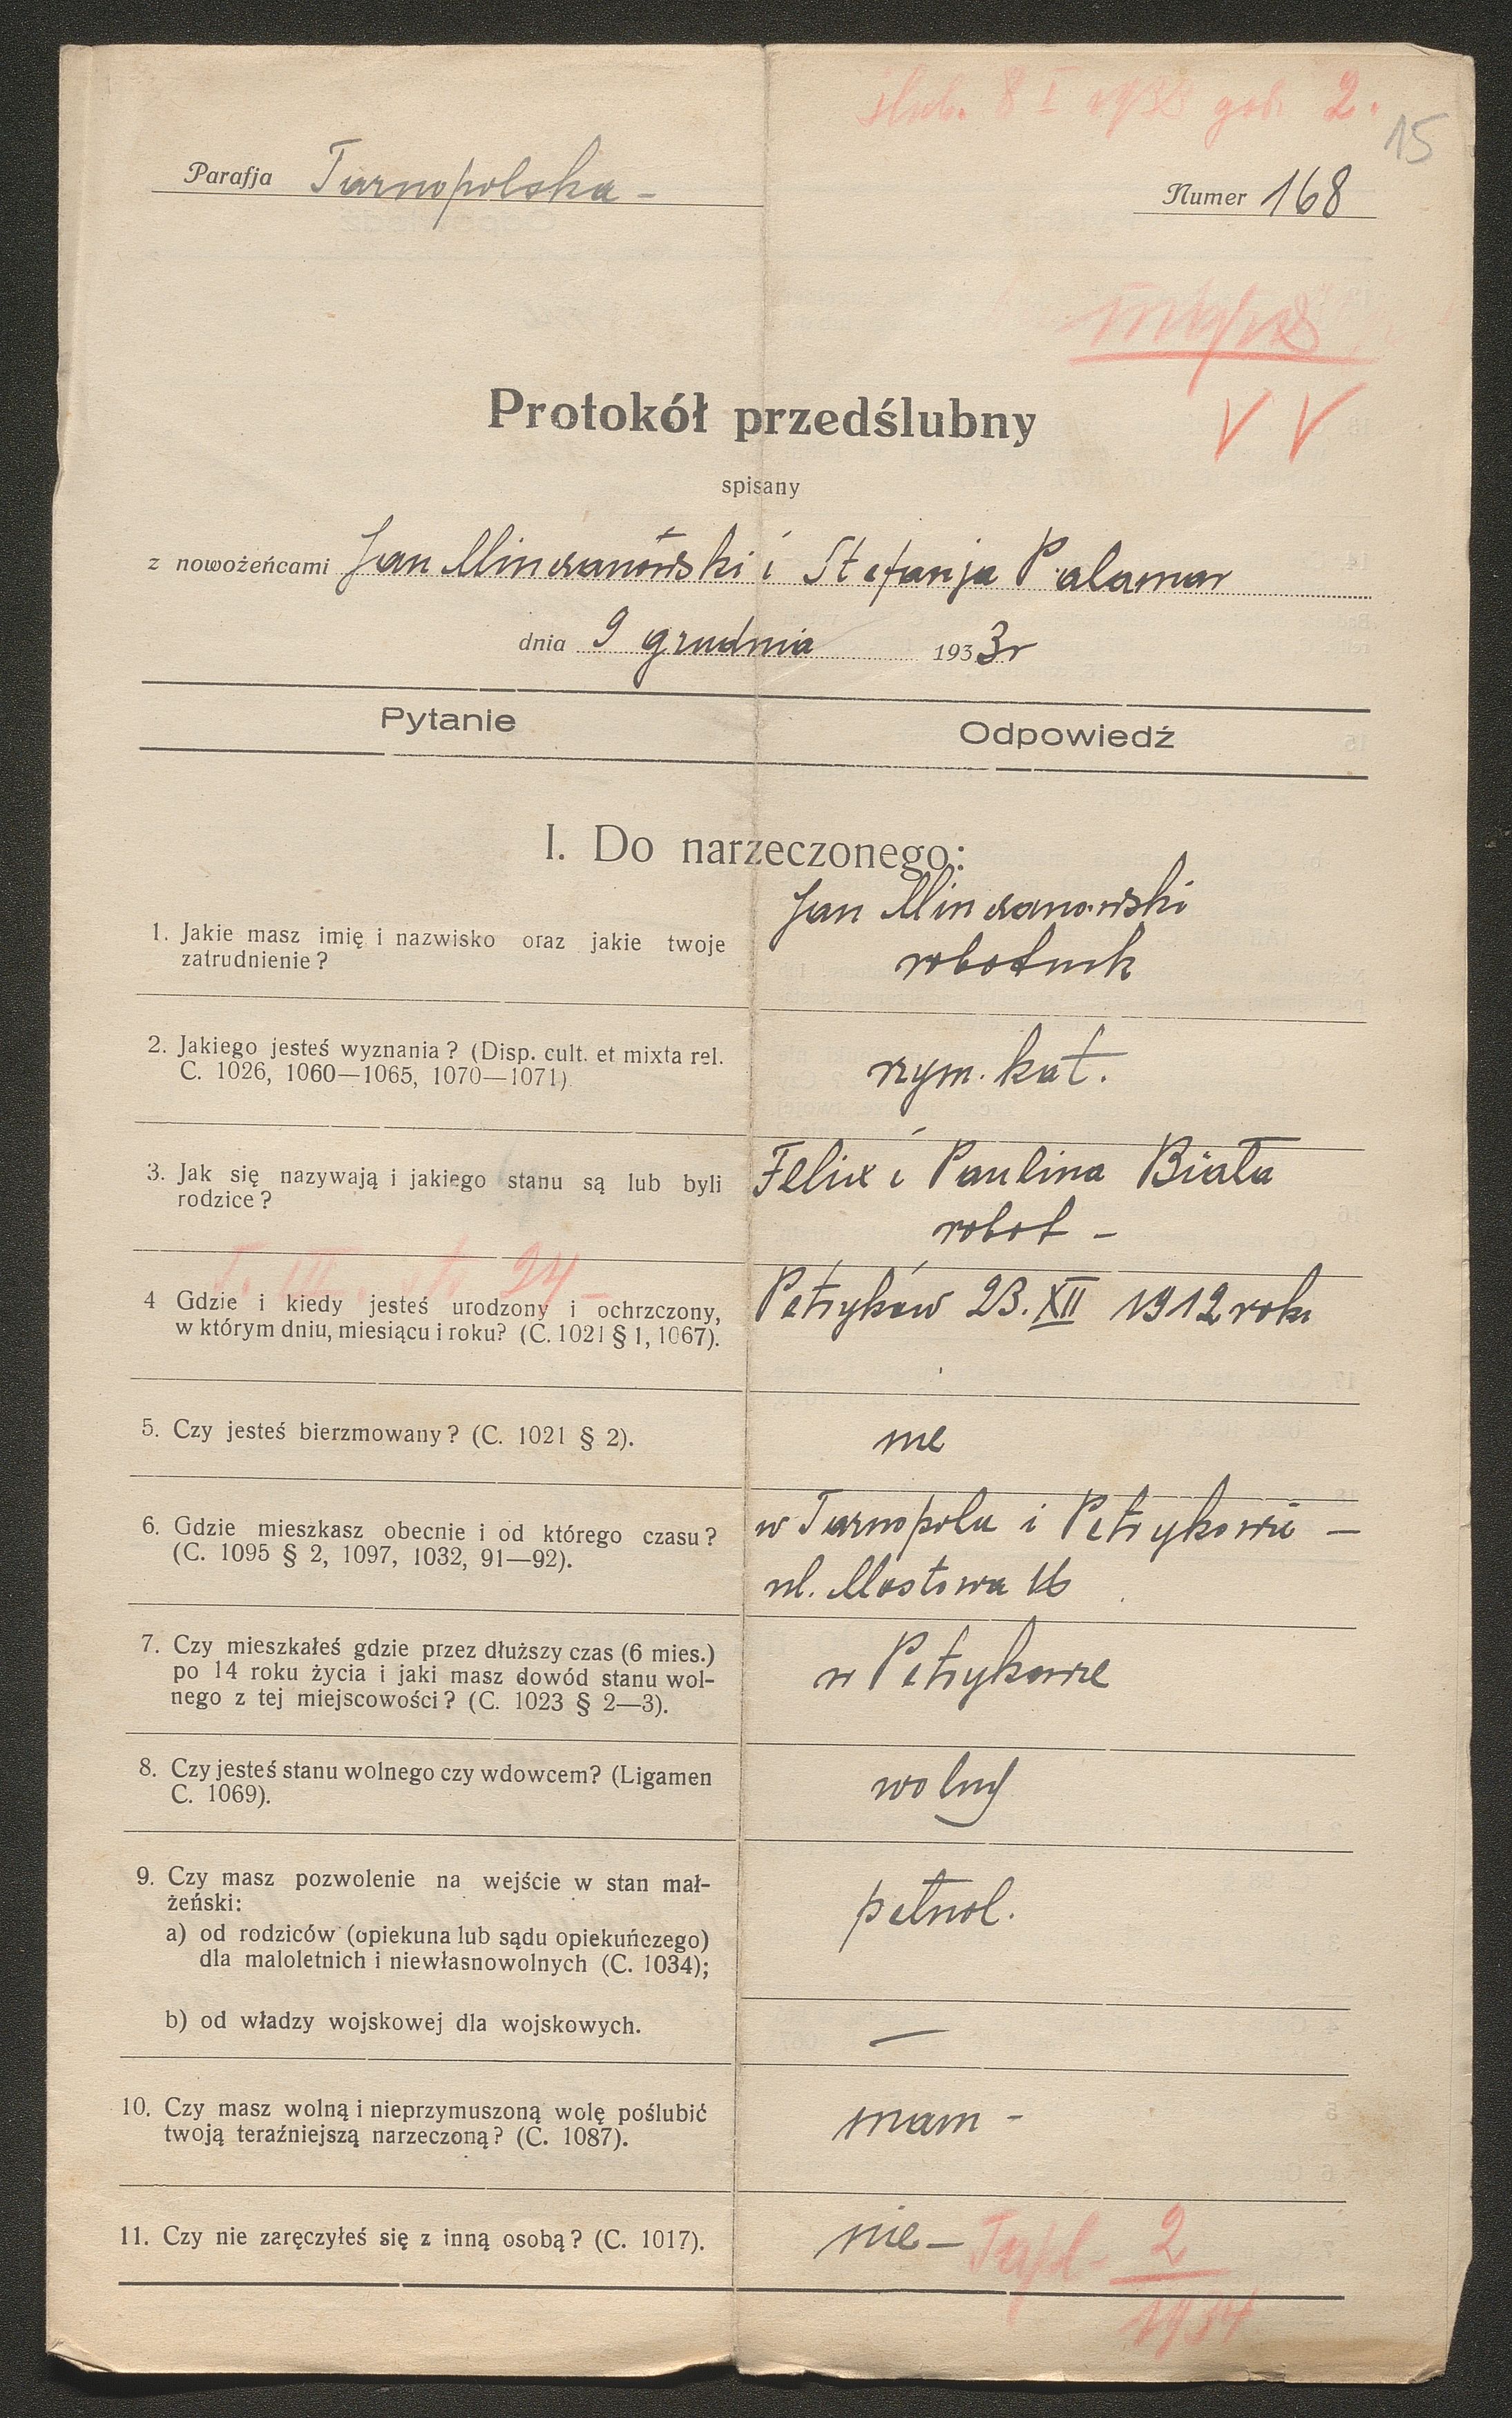 ślub. 8 I 1933 god. 2.
15
Parafja Tarnopolska –
Numer 168
V V
Protokół przedślubny
spisany
z nowożeńcami Jan Minczanowski i Stefanja Palamar
dnia 9 grudnia 1933r
Pytanie
Odpowiedź
I. Do narzeczonego:
1. Jakie masz imię i nazwisko oraz jakie twoje
zatrudnienie?
Jan Minczanowski
robotnik
2. Jakiego jesteś wyznania? (Disp. cult. et mixta rel.
C. 1026, 1060—1065, 1070—1071)
rzym. kat.
3. Jak się nazywają i jakiego stanu są lub byli
rodzice?
Felix i Paulina Biała
robot –
24 –
4 Gdzie i kiedy jesteś urodzony i ochrzczony,
w którym dniu, miesiącu i roku? (C. 1021 § 1, 1067).
Petryków 23. XII 1912 roku
5. Czy jesteś bierzmowany? (C. 1021 § 2).
nie
6. Gdzie mieszkasz obecnie i od którego czasu?
(C. 1095 § 2, 1097, 1032, 91—92).
w Tarnopolu i Petrykowie –
ul. Mostowa 16
7. Czy mieszkałeś gdzie przez dłuższy czas (6 mies.)
po 14 roku życia i jaki masz dowód stanu wol-
nego z tej miejscowości? (C. 1023 § 2—3).
w Petrykowie
8. Czy jesteś stanu wolnego czy wdowcem? (Ligamen
C. 1069).
wolny
9. Czy masz pozwolenie na wejście w stan mał-
żeński:
a) od rodziców (opiekuna lub sądu opiekuńczego)
dla maloletnich i niewłasnowolnych (C. 1034);
pełnol.
b) od władzy wojskowej dla wojskowych.
—
10. Czy masz wolną i nieprzymuszoną wolę poślubić
twoją teraźniejszą narzeczoną? (C. 1087).
mam –
11. Czy nie zaręczyłeś się z inną osobą? (C. 1017).
nie –
2
1934